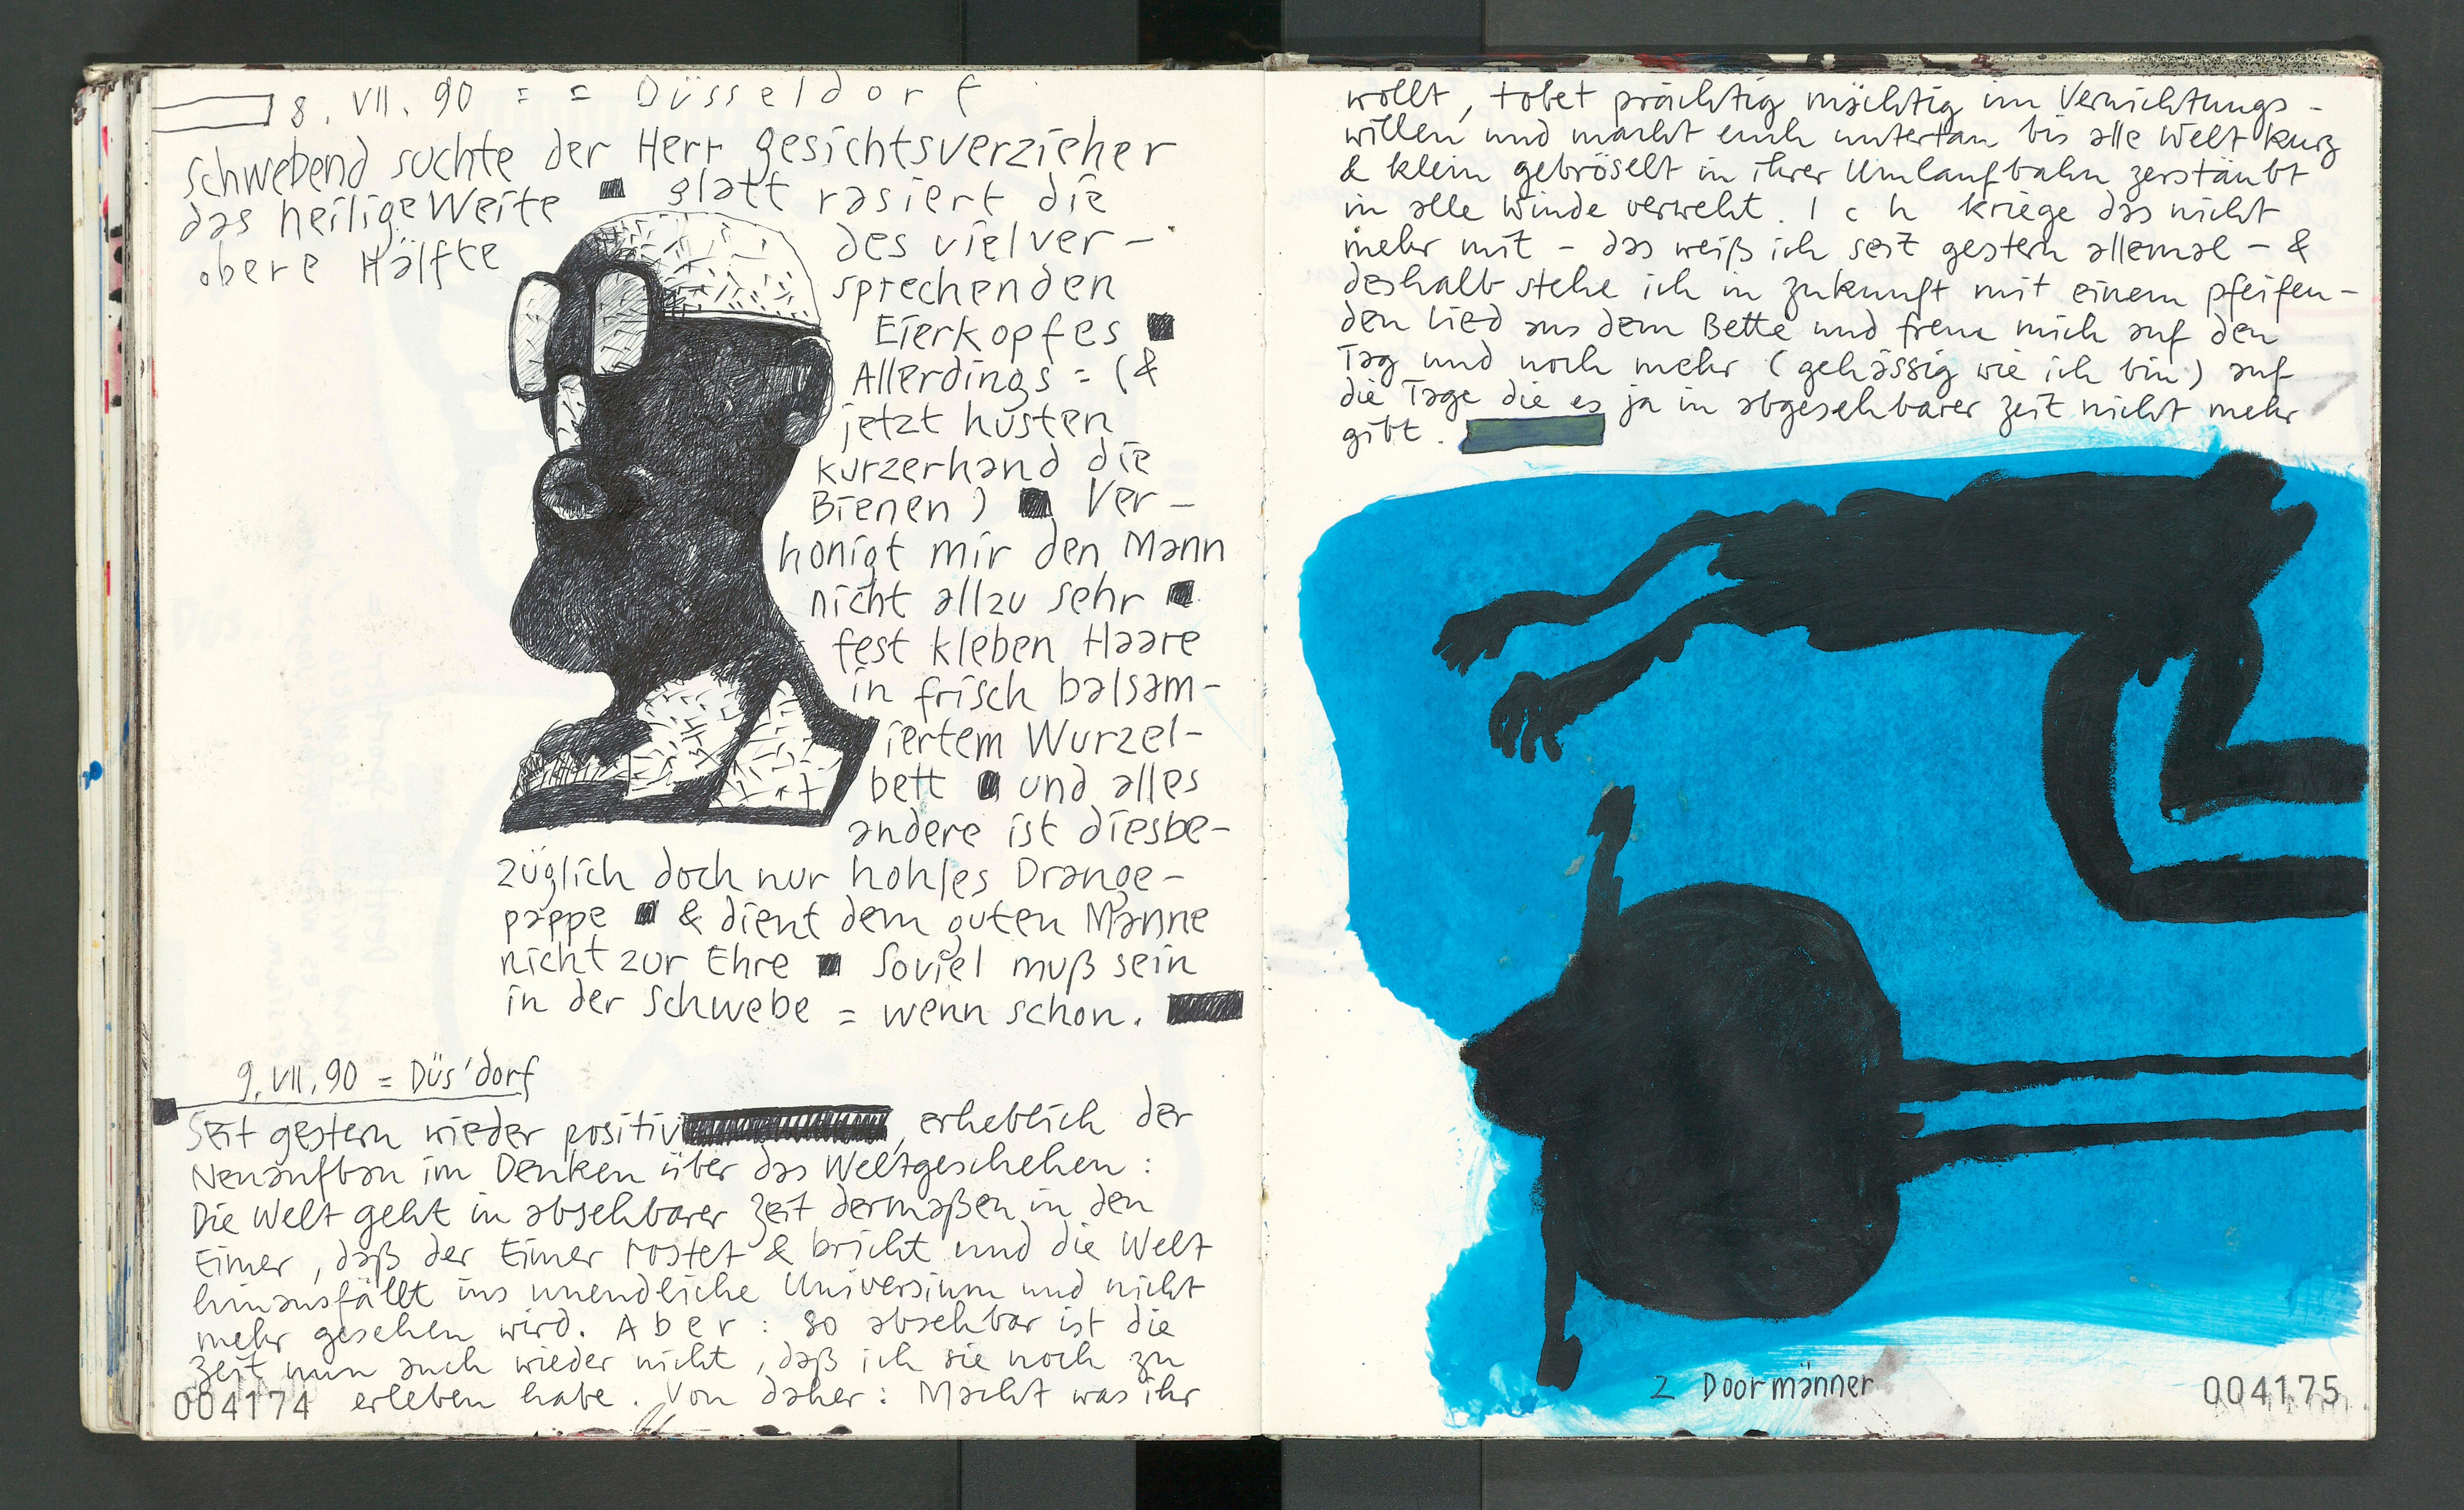 8. VII. 90 = = Düsseldorf
Schwebend suchte der Herr gesichtsverzieher
das heilige Weite ■ glatt rasiert die
obere Hälfte des vielver-
sprechenden
Eierkopfes ■
Allerdings = (&
jetzt husten
kurzerhand die
Bienen) ■ Ver-
honigt mir den Mann
nicht allzu sehr ■
fest kleben Haare
in frisch balsam-
iertem Wurzel-
bett ■ und alles
andere ist diesbe-
züglich doch nur hohles Orange-
pappe ■ & dient dem guten Manne
nicht zur Ehre ■ Soviel muß sein
in der Schwebe = wenn schon.
9. VII. 90 = Düs'dorf
Seit gestern wieder positiv, erheblich der
Neuaufbau im Denken über das Weltgeschehen:
Die Welt geht in absehbarer Zeit dermaßen in den
Eimer, daß der Eimer rostet & bricht und die Welt
hinausfällt ins unendliche Universium und nicht
mehr gesehen wird. Aber: so absehbar ist die
Zeit nun auch wieder nicht, daß ich sie noch zu
004174 erleben habe. Von daher: Macht was ihr
wollt, tobet prächtig mächtig im Vernichtungs-
willen und macht euch untertan bis alle Welt kurz
& klein gebröselt in ihrer Umlaufbahn zerstäubt
in alle Winde verweht. Ich kriege das nicht
mehr mit - das weiß ich seit gestern allemal - &
deshalb stehe ich in Zukunft mit einem pfeifen-
den Lied aus dem Bette und freue mich auf den
Tag und noch mehr (gehässig wie ich bin) auf
die Tage die es ja in absehbarer Zeit nicht mehr
gibt.
2 Doormänner
004175